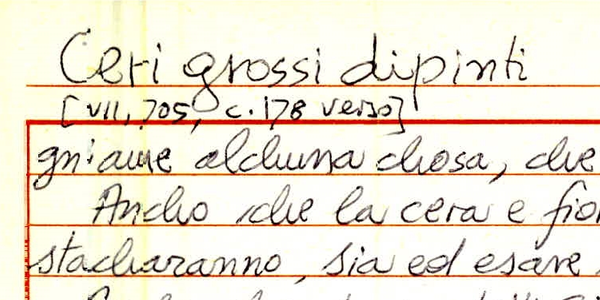 Ceri grossi dipinti
[VII, 705, c. 178 verso]
alchuna chosa, che
Ancho che la cera e
stacharanno, sia ed esare